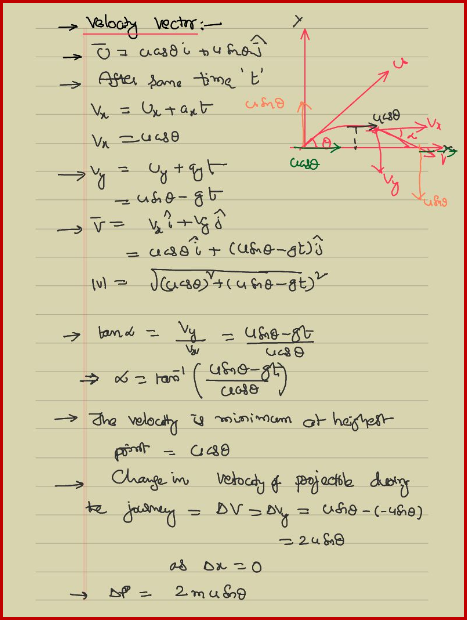 → Velocity vector:—
→ U̅ = ucosθ i + usinθ ĵ
→ After some time 't'
Vₓ = Uₓ + aₓt
Vₓ = ucosθ
→ Vy = Uy + ayt
= usinθ - gt
→ V̅ = Vₓ î + Vy ĵ
= ucosθ î + (usinθ - gt) ĵ
|v| = √(ucosθ)² + (usinθ - gt)²
→ tanα = Vy/Vₓ = usinθ - gt/ucosθ
⇒ α = tan⁻¹ (usinθ - gt/ucosθ)
→ The velocity is minimum at heighest
point = ucosθ
→ Change in velocity of projectile during
the journey = ΔV = ΔVy = usinθ - (-usinθ)
= 2usinθ
as Δx = 0
→ ΔP = 2musinθ
Y
u
usinθ
ucosθ
Vₓ
α
θ
ucosθ
x
V
Vy
usinθ